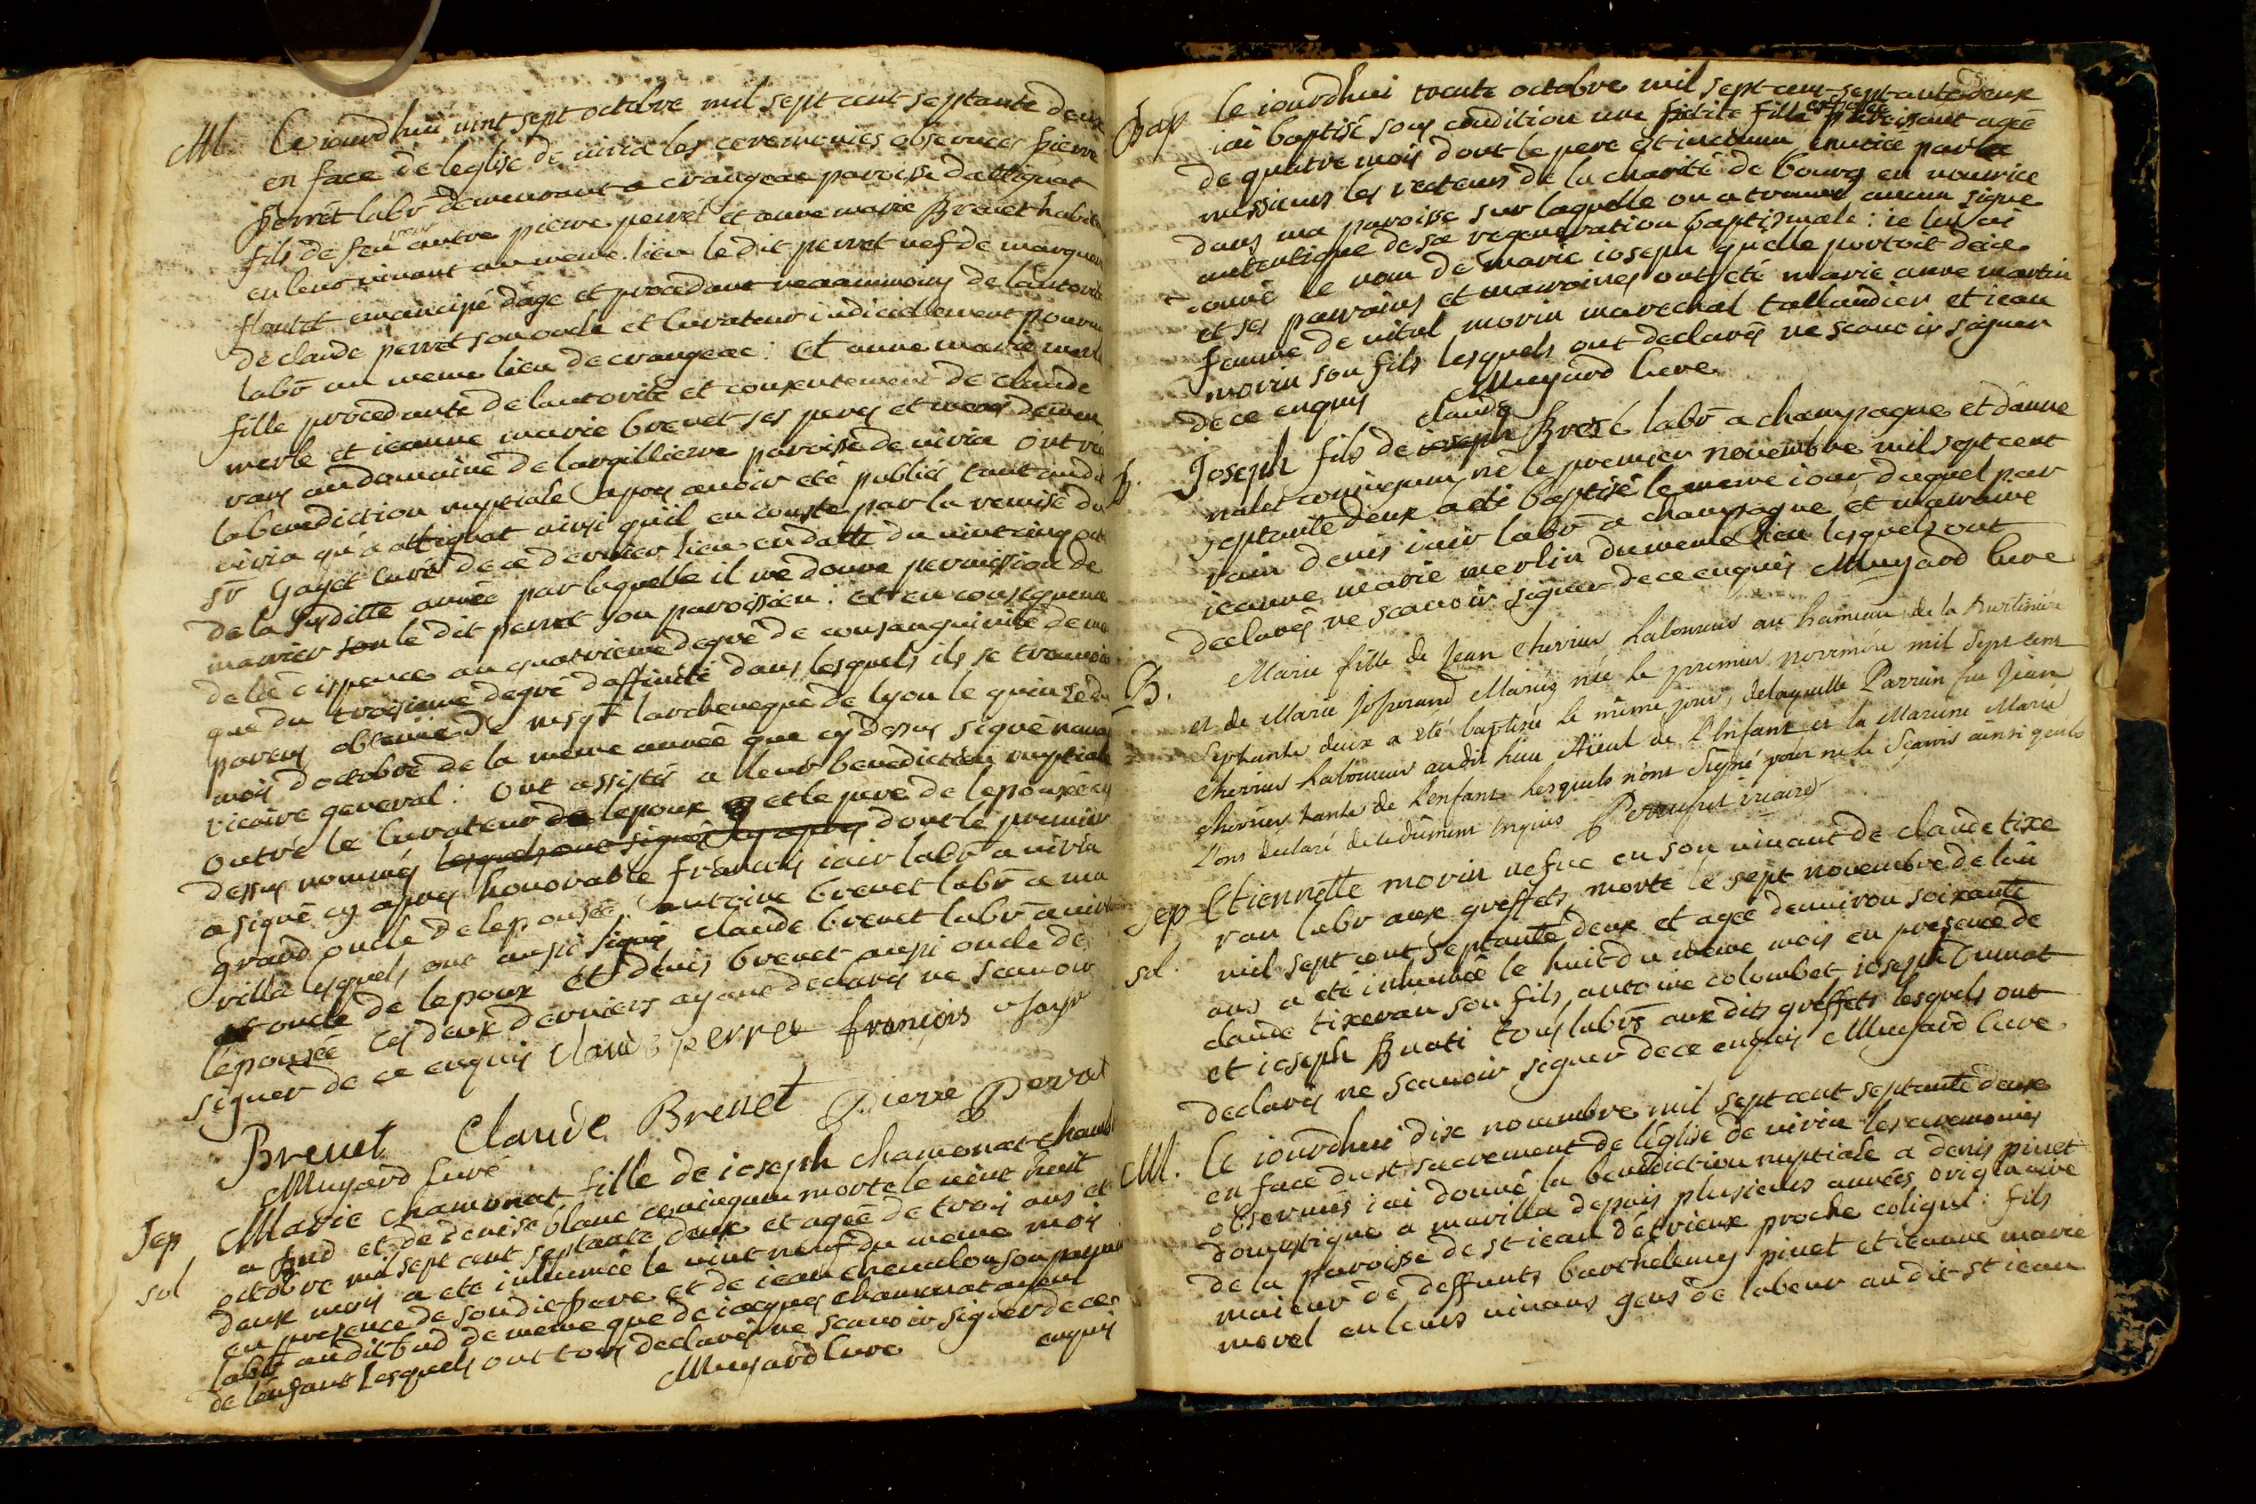 M. Ce iourdhui vint sept octobre mil sept cent septante deux
en face de leglise de viria les ceremonies observees pierre
perret labr demeurant a crangeac paroisse dattignat
fils de feu autre pierre perret et anne marie Brevet habit
en leur vivant au meme lieu le dit perret vef de
emancipé dage et procedant neanmoins de lautorité
de claude perret son oncle et curateur iudiciellement pourvu
labr au meme lieu de crangeac : Et anne marie merle
fille procedante de lautorité et consentement de claude
merle et ieanne marie brevet ses peres et meres demeu
rans au domaine de largilliere paroisse de viria ont reçu
la benediction nuptiale apres avoir été publiés tant audit
viria qu'a attignat ainsi qu'il en conste par la remise du
sr Gayet curé de ce dernier lieu en datte du vint cinq oct
de la susditte année par laquelle il me donne permission de
marier son le dit perret son paroissien : et en consequence
de la dispence au quatrieme degré de consanguinité de me
que du troisieme degré daffinité dans lesquels ils se trouvoie
parens obtenue de msgr larcheveque de lyon le quinze du
mois doctobre de la meme année que cy dessus signé navar
vicaire general : Ont assistés a leur benediction nuptiale
outre le curateur de lepoux et le pere de lepousée cy
dessus nommés lesquels ont signés cy apres dont le premier
a signé cy apres honorable francois iair labr a viria
grand oncle de lepousée antoine brevet labr a ma
villa lesquels ont aussi signé claude brevet labr a viria
et oncle de lepoux et denis brevet aussi oncle de
lepousée les deux derniers ayans declarés ne scavoir
signer de ce enquis Claude perret françois Jayr
Brevet Claude Brevet Pierre Perrat
Muyard Curé
Sep Marie chamonat fille de ioseph chamonat
a fud et de denise blanc conioigum morte le vint huit
sol octobre mil sept cent septante deux et agée de trois ans et
deux mois a eté inhumée le vint neuf du meme mois
en presence de son dit pere et de iean chevalon son parrain
labr au dit fud de meme que de iacques chamonat ayeul
de lenfant lesquels ont tous declarés ne scavoir signer de ce
enquis
Muyard Cure
Bap le iourdhui trente octobre mil sept cent septante deux
iai baptisé sous condition une petite fille exposée paroissant agée
de quatre mois dont le pere est inconnu envoiée par
messieurs les recteurs de la charité de bourg en nourice
dans ma paroisse sur laquelle on a trouvé aucun signe
autentique de sa regeneration baptismale : ie lui ai
donné le nom de marie ioseph quelle portoit deia
et ses parrains et marraines ont eté marie anne martin
femme de vital morin marechal taillandier et iean
morin son fils lesquels ont declarés ne scavoir signer
de ce enquis Muyard Cure
B. Joseph fils de ioseph claude Brosé labr a champagne et danne
nalet coniuguum né le premier novembre mil sept cent
septante deux a eté baptisé le meme iour duquel par
rain denis iair labr a champagne et marraine
ieanne marie merlin du meme lieu lesquels ont
declarés ne scavoir signer de ce enquis Muyard Cure
B. Marie fille de Jean Chevrier Laboureur au hameau de la
et de Marie Josserand Mariés née le premier novembre mil sept cent
Septante deux a été baptisée le même jour, delaquelle Parrain fut Jean
Chevrier Laboureur audit lieu Aïeul de L'Enfant et la Maraine Marie
Chevrier tante de L'enfant lesquels n'ont signé pour ne le Scavoir ainsi qu'ils
L'ont declaré de ce dûment enquis vicaire
Sep Etiennette morin vefve en son vivant de claude tixe
ran labr aux greffets morte le sept novembre de lan
sol. mil sept cent septante deux et agée denviron soixante
ans a eté inhumée le huit du meme mois en presence de
claude tixeran son fils, antoine colombet ioseph
et ioseph buati tous labrs aux dits greffets lesquels ont
declarés ne scavoir signer de ce enquis Muyard Cure
M. Ce iourdhui dix novembre mil sept cent septante deux
en face du st sacrement de l'église de viria les ceremonies
observées iai donné la benediction nuptiale a denis pinet
domestique a mavilla depuis plusieurs années originaire
de la paroisse de st iean d'étrieux proche coligni : fils
maieur de deffunts barthelemy pinet et ieanne marie
morel en leurs vivans gens de labeur au dit st iean